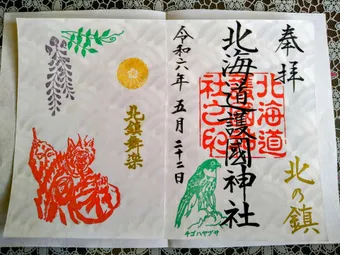 奉拝
北海道護國神社
北海道
護國神
社之印
令和六年 五月 二十二日
北の鎮
チゴハヤブサ
北鎮舞楽